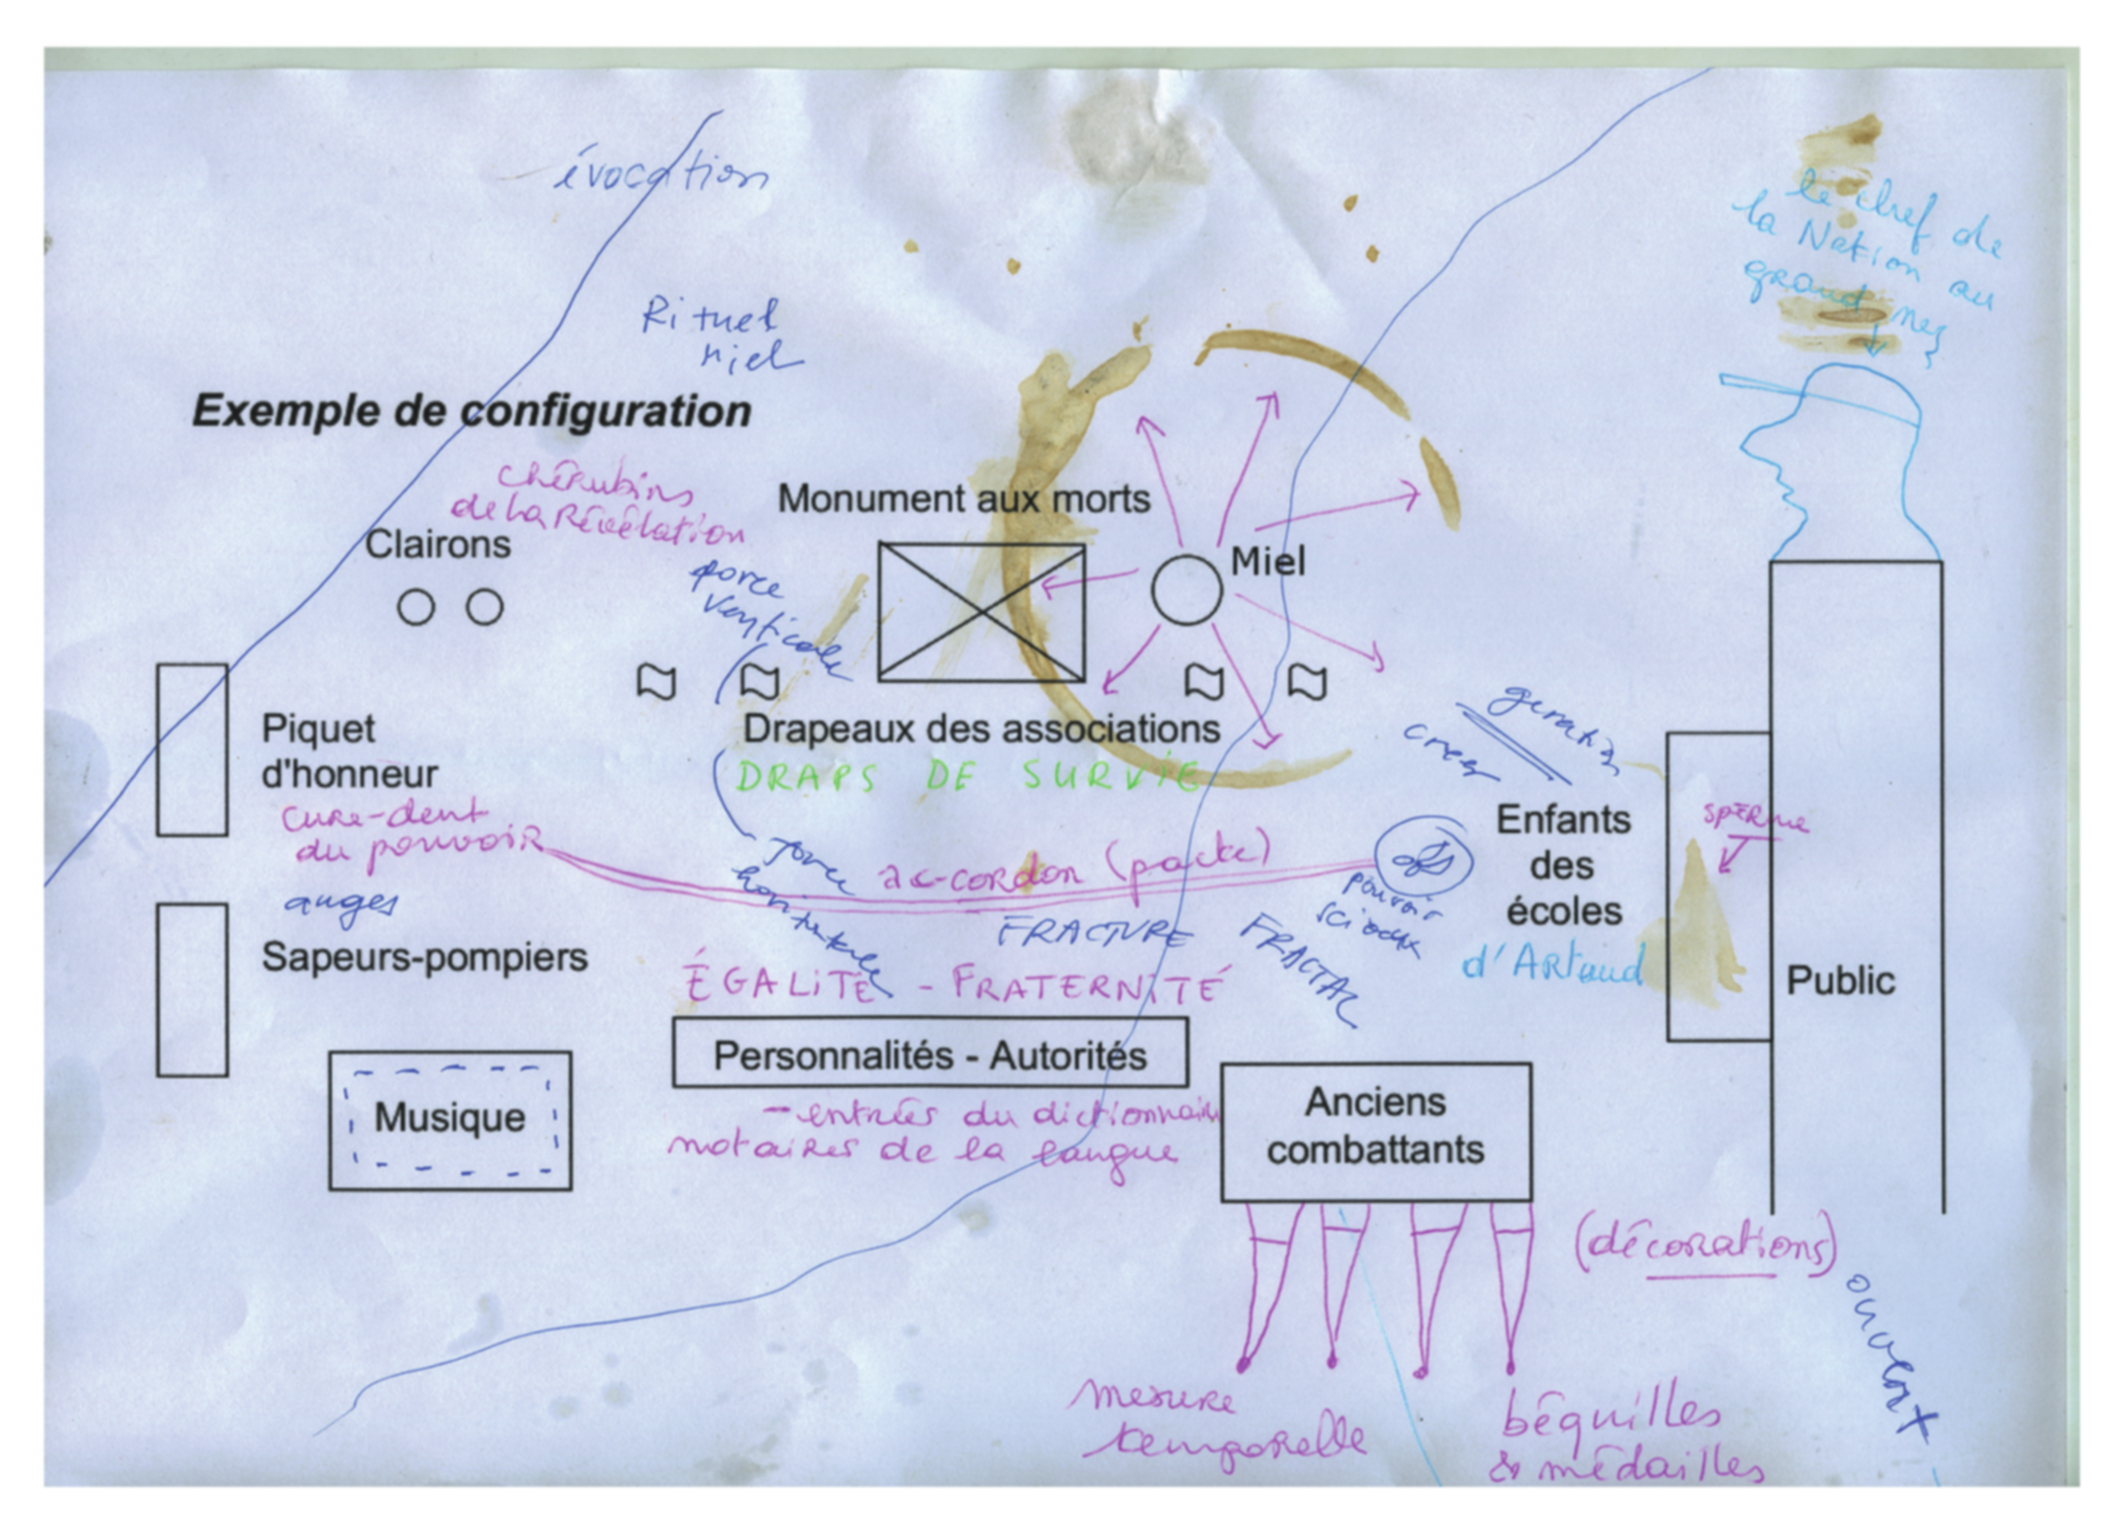 évocation
le chef de
la Nation au
grand nez
Rituel
miel
Exemple de configuration
chérubins
de la Révélation
Monument aux morts
Clairons
Miel
force
verticale
Piquet
d'honneur
Drapeaux des associations
DRAPS DE SURVIE
créer
cure-dent
du pouvoir
Enfants
des
écoles
d'Artaud
SPERME
ac-cordon (pacte)
force
horizontale
anges
pouvoir
FRACTURE
FRACTAL
Sapeurs-pompiers
ÉGALITÉ - FRATERNITÉ
Public
Personnalités - Autorités
Musique
- entrées du dictionnaire
notaires de la langue
Anciens
combattants
(décorations)
ouvert
mesure
temporelle
béquilles
& médailles